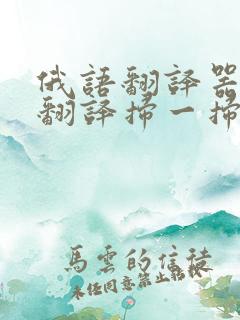 俄語翻譯器
翻譯掃一掃
馬雲的信徒
未任同意禁止転載